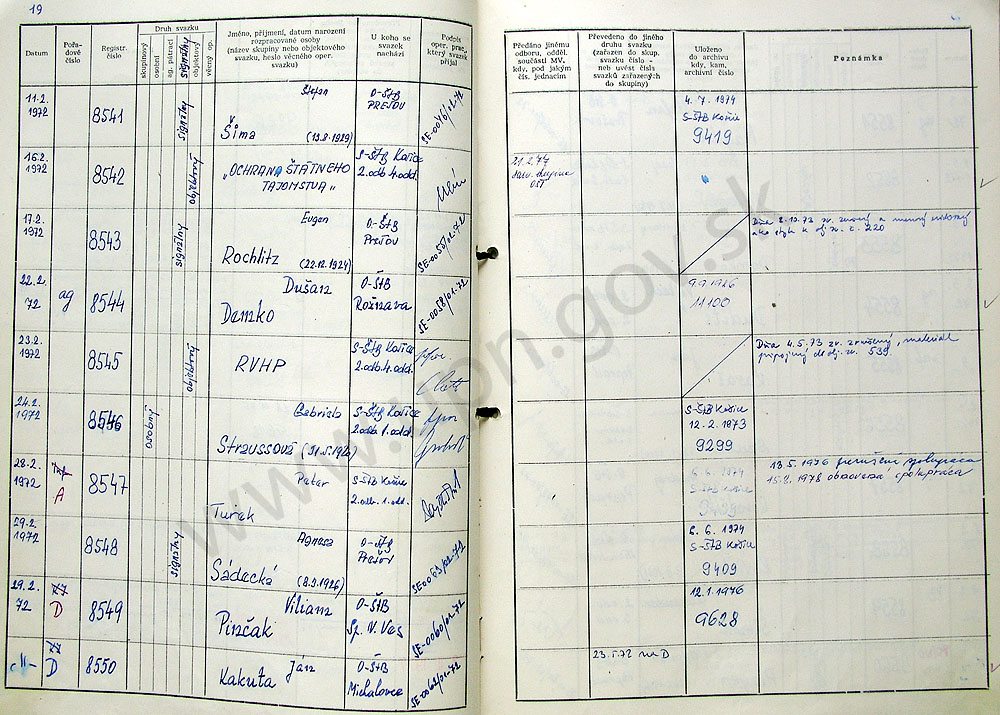 19
Datum
Pořadové číslo
Registr. číslo
Druh svazku
skupinový
osobní
ag. pátrací
signálny
objektový
věcný op.
Jméno, příjmení, datum narození
rozpracované osoby
(název skupiny nebo objektového
svazku, heslo věcného oper.
svazku)
U koho se
svazek
nachází
Podpis
oper. prac.,
který svazek
přijal
Předáno jinému
odboru, odděl.
součásti MV.
kdy, pod jakým
čís. jednacím
Převedeno do jiného
druhu svazku
(zařazen do skup.
svazku číslo -
neb uvést čísla
svazků zařazených
do skupiny)
Uloženo
do archivu
kdy, kam,
archivní číslo
Poznámka
11.2.
1972
8541
signálny
Štefan
Šíma (13.8.1929)
O-ŠtB
PREŠOV
SE-0046/02-72
4. 7. 1974
S-ŠtB Košice
9419
16.2.
1972
8542
objektový
„OCHRANA ŠTÁTNEHO
TAJOMSTVA"
S-ŠtB Košice
2.odb 4.odd.
21.2.74
17.2.
1972
8543
signálny
Eugen
Rochlitz (22.12.1924)
O-ŠtB
Prešov
SE-0050/02-72
Dňa 2.10.73 zv. zrušený a
ako styk k obj. zv. č. 220
22.2.
72
ag
8544
Dušan
Demko
O-ŠtB
Rožňava
SE-0058/01-72
9.9.1986
11100
23.2.
1972
8545
objektový
RVHP
S-ŠtB Košice
2.odb.4.odd.
Dňa 4.5.73 zv. zrušený, materiál
pripojený do obj. zv. 539.
24.2.
1972
8546
osobný
Gabriela
Straussová
S-ŠtB Košice
2.odb 1.odd.
S-ŠtB Košice
12. 2. 1973
9299
28.2.
1972
A
8547
Peter
Turek
S-ŠtB Košice
2.odb. 1.odd.
6. 6. 1974
S-ŠtB Košice
13.5.1976 prerušená spolupráca
15.2.1978 obnovená spolupráca
29.2.
1972
8548
signálny
Agnesa
Sádecká (8.9.1926)
O-ŠtB
Prešov
6. 6. 1974
S-ŠtB Košice
9409
29.2.
72
D
8549
Viliam
Pinčák
O-ŠtB
Sp. N. Ves
SE-0060/02-72
12.1.1976
9628
-"-
D
8550
Ján
Kakuta
O-ŠtB
Michalovce
SE-0062/01-72
23.5.72 na D
www.upn.gov.sk